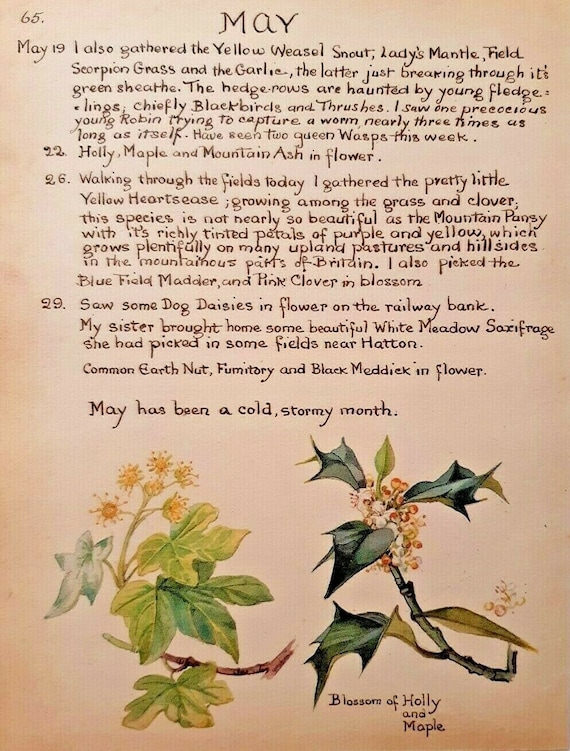 65.
MAY
May 19 I also gathered the Yellow Weasel Snout, Lady's Mantle, Field
Scorpion Grass and the Garlic, the latter just breaking through it's
green sheathe. The hedge-rows are haunted by young fledge=
=lings; chiefly Blackbirds and Thrushes. I saw one precocious
young Robin trying to capture a worm nearly three times as
long as itself. Have seen two queen Wasps this week.
22. Holly, Maple and Mountain Ash in flower.
26. Walking through the fields today I gathered the pretty little
Yellow Heartsease; growing among the grass and clover;
this species is not nearly so beautiful as the Mountain Pansy
with it's richly tinted petals of purple and yellow, which
grows plentifully on many upland pastures and hill sides
in the mountainous parts of Britain. I also picked the
Blue Field Madder, and Pink Clover in blossom
29. Saw some Dog Daisies in flower on the railway bank.
My sister brought home some beautiful White Meadow Saxifrage
she had picked in some fields near Hatton.
Common Earth Nut, Fumitory and Black Meddick in flower.
May has been a cold, stormy month.
Blossom of Holly
and
Maple